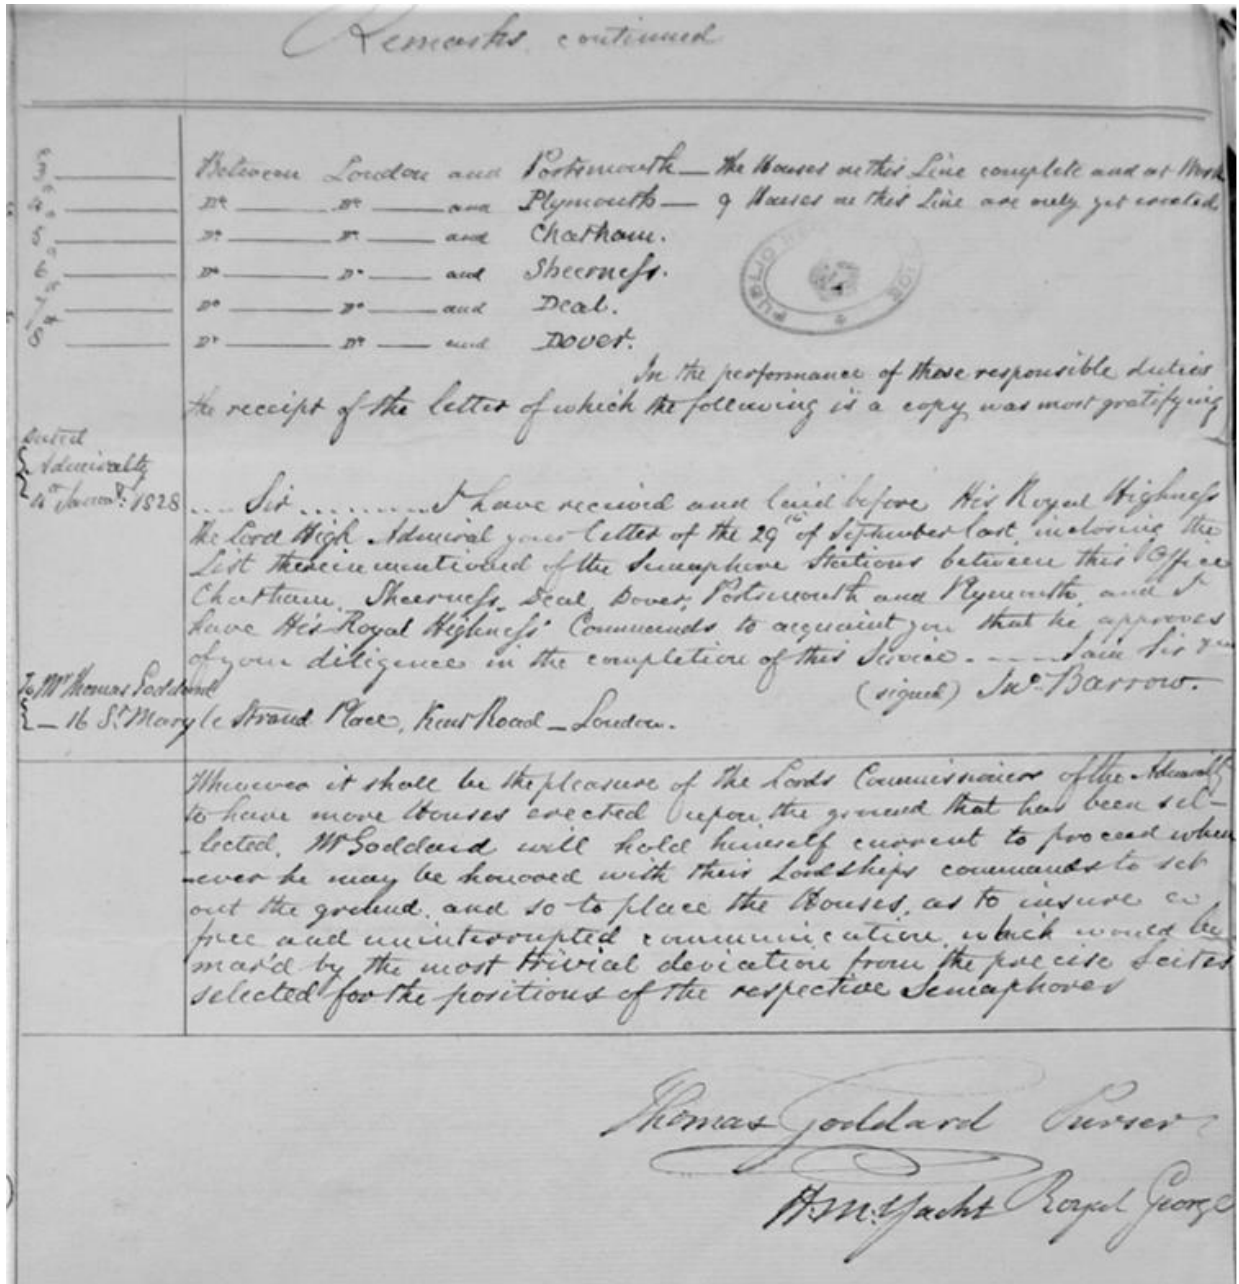 Remarks continued
3 Between London and Portsmouth — the Houses on this Line complete and at Work
4 Do Do and Plymouth — 9 Houses on this Line are only yet erected
5 Do Do and Chatham.
6 Do Do and Sheerness.
7 Do Do and Deal.
8 Do Do and Dover.
PUBLIC
In the performance of these responsible duties
the receipt of the letter of which the following is a copy was most gratifying
dated
Admiralty
4th Januay. 1828
Sir I have received and laid before His Royal Highness
the Lord High Admiral your letter of the 29th of September last, inclosing the
List therein mentioned of the Semaphore Stations between this Office
Chatham, Sheerness, Deal, Dover, Portsmouth and Plymouth, and I
have His Royal Highness' Commands to acquaint you that he approves
of your diligence in the completion of this Service. — I am Sir
(signed) Jno. Barrow.
To Mr Thomas Goddard
— 16 St. Mary le Strand Place, Kent Road — London.
Whenever it shall be the pleasure of the Lords Commissioners of the Admiralty
to have more Houses erected upon the ground that has been sel-
-lected, Mr Goddard will hold himself current to proceed when
-ever he may be honored with their Lordships commands to set
out the ground, and so to place the Houses, as to insure a
free and uninterrupted communication, which would be
mar'd by the most trivial deviation from the precise Scites
selected for the positions of the respective Semaphores
Thomas Goddard Purser
H.M. Yacht Royal George